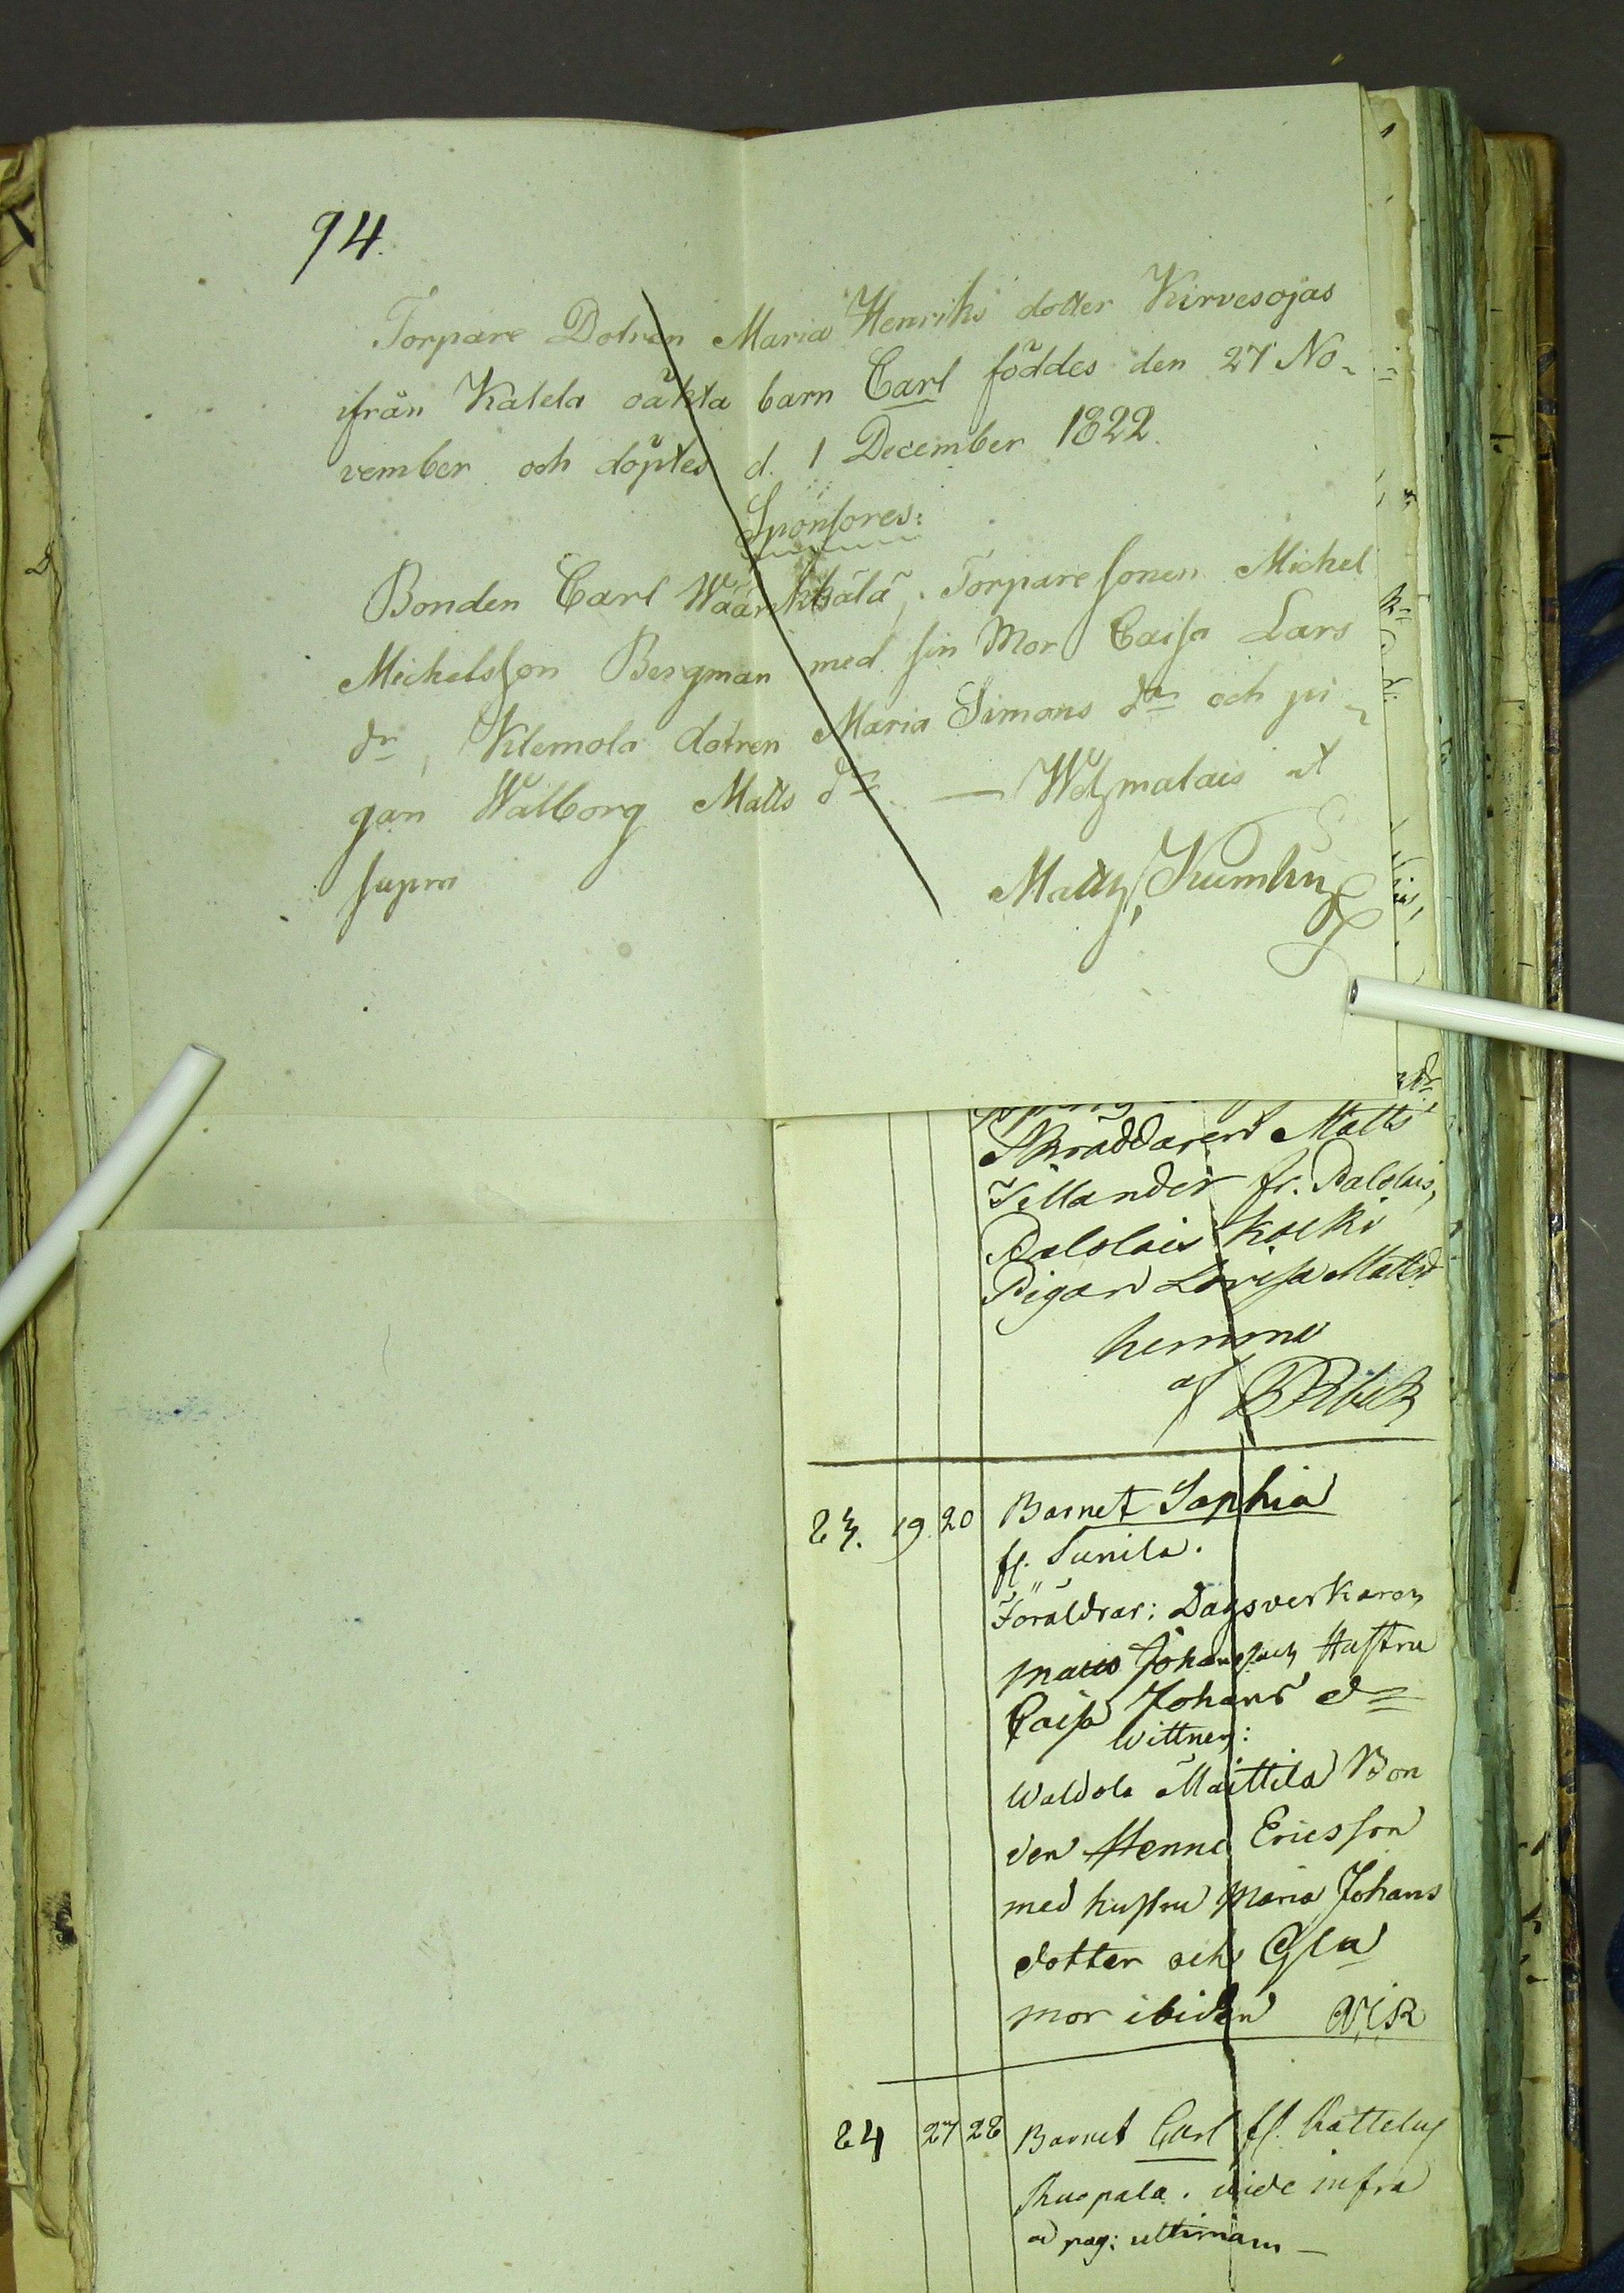 94.
Torpare Dotren Maria Henriks dotter Kirvesojas
ifrån Katela oäkta barn Carl föddes den 27 No-
vember och döptes d. 1 December 1822.
Sponsores:
Bonden Carl Torpare sonen Michel
Michelsson Bergman med sin Mor Caisa Lars
dr, Klemola dotren Maria Simons dr och pi-
gan Walborg Matts dr — Wetzmalais ut
supra Matth: Kumlin
Skräddaren Matts
Tillander fr. Palolais,
Palolais Koeki
Pigan Lovisa Mattsd.
hemma
af
23. 19 20 Barnet Sophia
fr. Sunila.
Föräldrar: Dagsverkaren
Matts Johansson Hustru
Caisa Johans dr
Wittnen:
Waldola Maittila Bon
den Henric Ericsson
med hustru Maria Johans
dotter och Gla
mor ibidem
24 27 28 Barnet Carl fr.
Ruopala. vide infra
ad pag: ultimam —